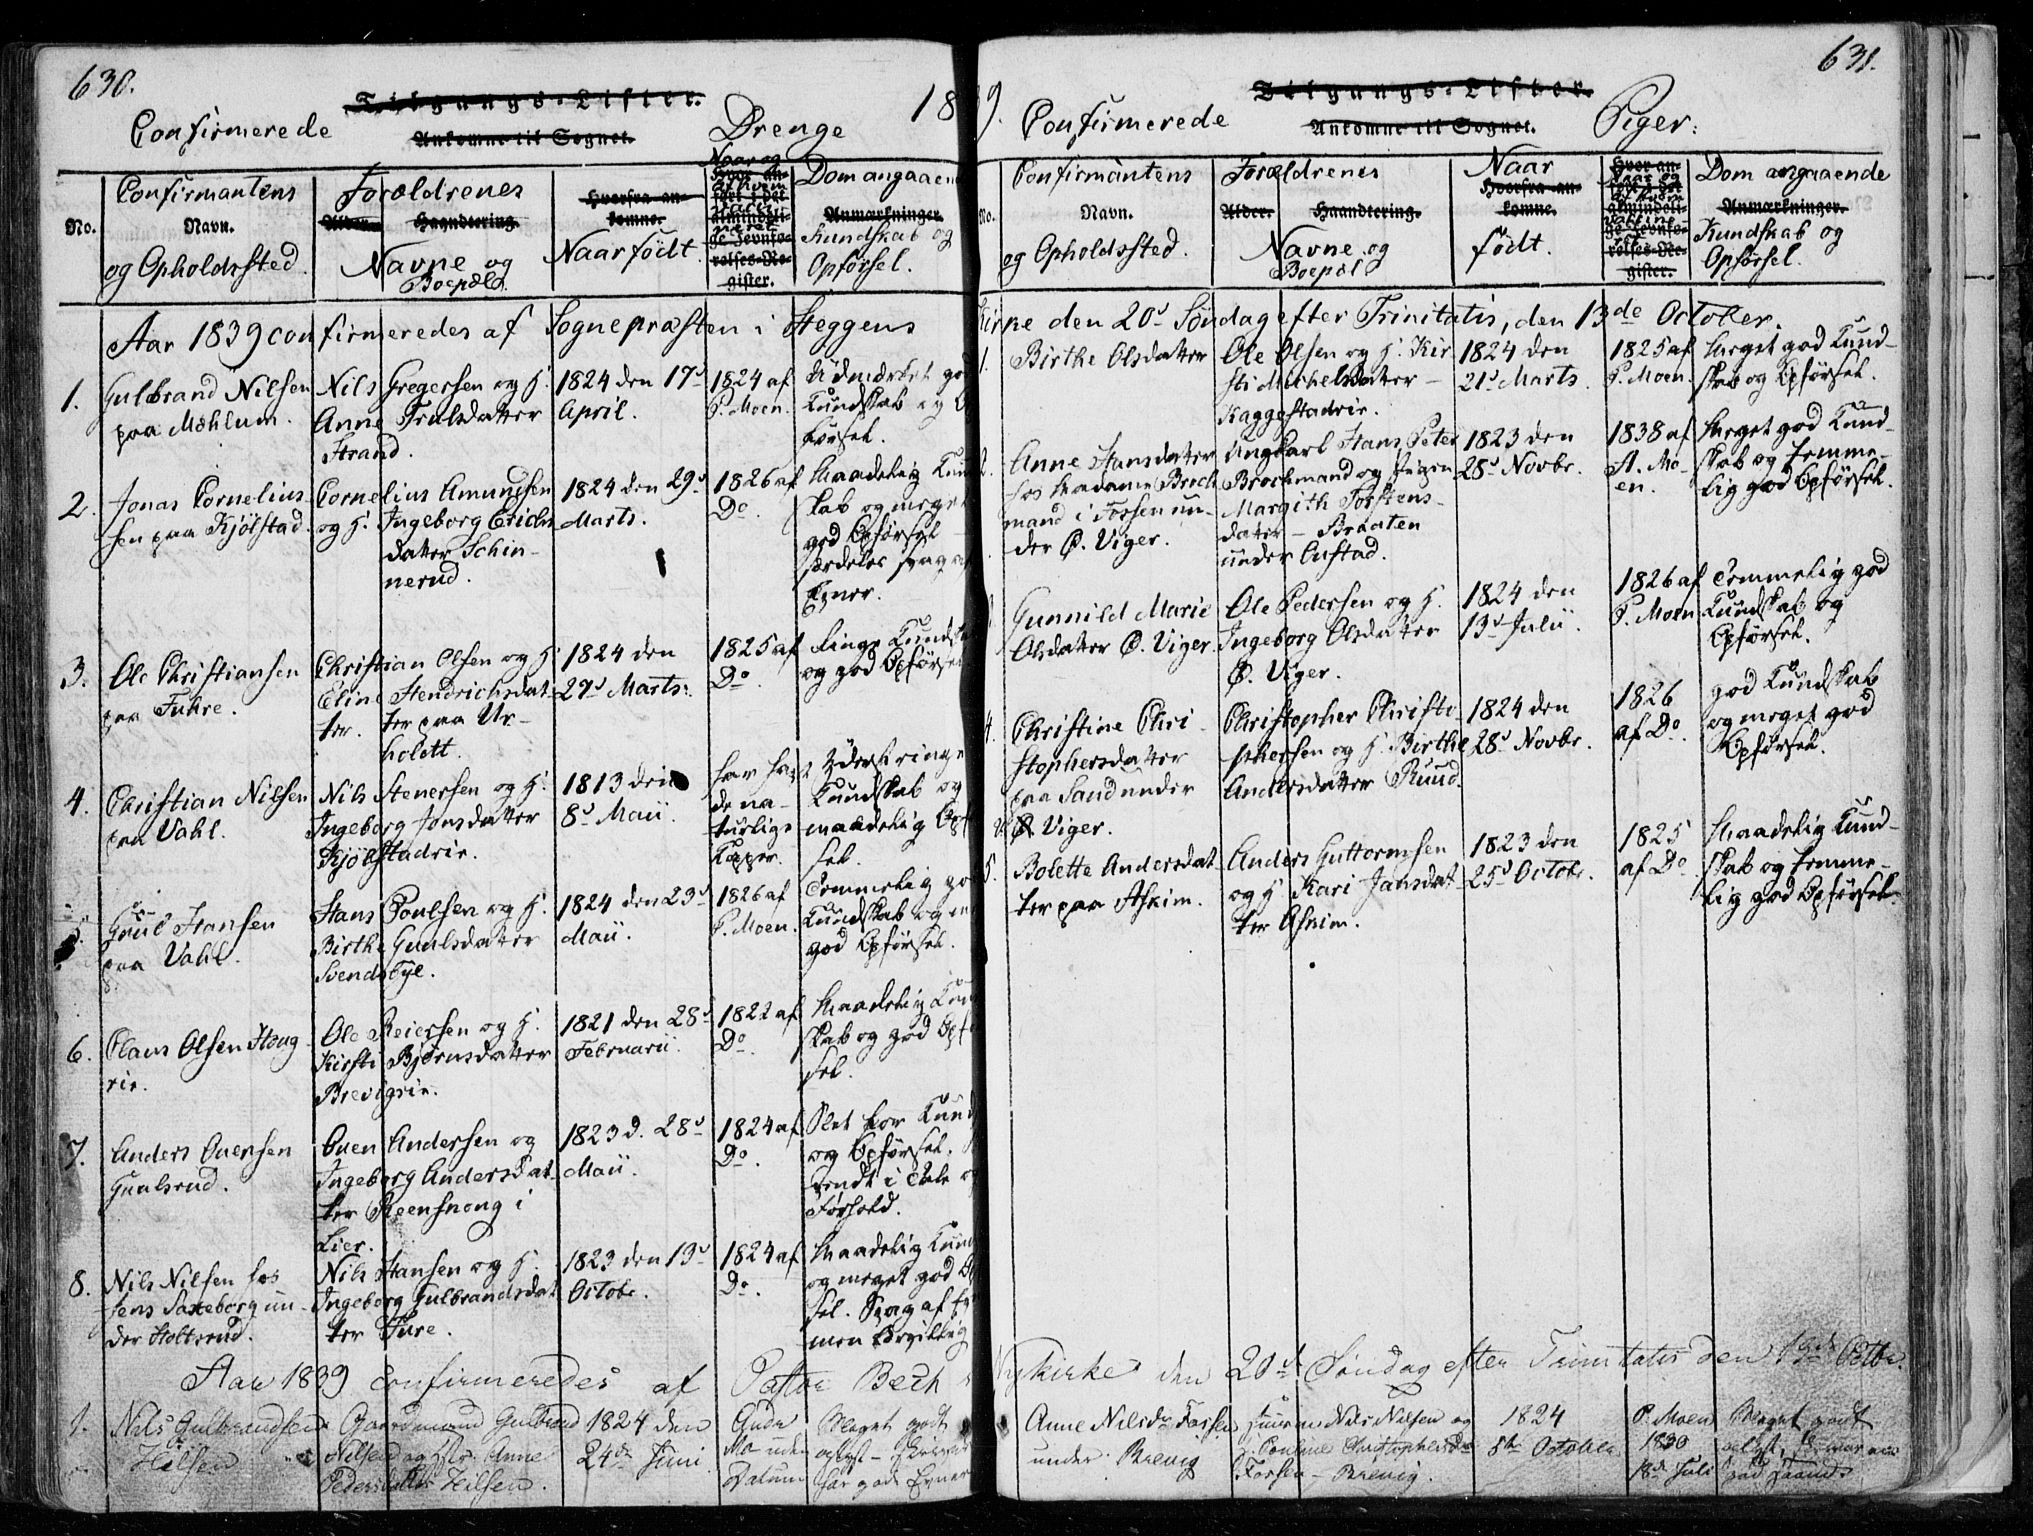 630.
Tilgangs-Lister.
18
Confirmerede
Ankomne til Sognet.
Drenge
No.
Confirmantens
Navn.
og Opholdssted.
Forældrenes
Alder.
Haandtering.
Navne og
Boepæl.
Hvorfra an-
komne.
Naar født.
Naar og
Dom angaaen
Anmærkninger.
Kundskab og
Opførsel.
Aar 1839 confirmeredes af Sognepræsten i Heggens
1.
Gulbrand Nilsen
paa Mæhlum.
Nils Gregersen og H.
Anne Trulsdatter
Strand.
1824 den 17d
April.
1824 af
P. Moen.
Udmærket god
Kundskab og O
førsel.
2.
Jonas Cornelius
sen paa Kjølstad.
Cornelius Amundsen
og H. Ingeborg Erichs
datter Schin-
nerud.
1824 den 29d
Marts.
1826 af
Do.
Maadelig Kund
skab og meget
god Opførsel
særdeles svag af
Evner.
3.
Ole Christiansen
paa Fuhre.
Christian Olsen og H.
Eline Hendrichsdat-
ter paa Ur-
holdtt.
1824 den
27d Marts.
1825 af
Do.
Ringe Kundska
og god Opførsel
4.
Christian Nilsen
paa Vahl.
Nils Stenersen og H.
Ingeborg Jonsdatter
Kjølstadeie.
1813 den
8d Maii.
har havt
de na-
turlige
Kopper.
Yderst ringe
Kundskab og
maadelig Opf
sel.
5.
Guul Hansen
paa Vahl.
Hans Poulsen og H.
Birthe Guulsdatter
Svendsbye.
1824 den 23d
Maii.
1826 af
P. Moen.
Temmelig go
Kundskab og m
god Opførsel.
6.
Claus Olsen Haug-
eie.
Ole Reiersen og H.
Kirsti Bjørnsdatter
Brevigeie.
1821 den 28d
Februarii.
1822 af
Do.
Maadelig Kun
skab og god Opf
sel.
7.
Anders Ouensen
Guulsrud.
Ouen Andersen og
Ingeborg Andersdat-
ter Reensnong i
Lier.
1823 d. 28d
Maii.
1824 af
Do.
Slet for Kund
og Opførsel.
endt i Tale o
Forhold.
8.
Nils Nilsen hos
Jens Saxeborg un-
der Holtsrud.
Nils Hansen og H.
Ingeborg Gulbrandsdat
ter Fure.
1823 den 13d
Octobr.
1824 af
Do.
Maadelig Kund
og meget god O
sel. Svag af Ev
men
Aar 1839 confirmeredes af Pastor Bech
1.
Nils Gulbrandsen
Hilsen
Gaardmand Gulbrand
Nilsen og Hstr. Anne
Pedersdatter Hilsen.
1824 den
24de Juni
Gude
Mo uden
Datum
Meget godt
oplyst -
har gode Evner
631.
Tilgangs-Lister.
9.
Confirmerede
Ankomne til Sognet.
Piger:
No.
Confirmantens
Navn.
og Opholdssted.
Forældrenes
Alder.
Haandtering.
Navne og
Boepæl
Naar
Hvorfra an-
komne.
født.
Dom angaaende
Anmærkninger.
Kundskab og
Opførsel.
Kirke den 20d Søndag efter Trinitatis, den 13de October.
1.
Birthe Olsdatter
Ole Olsen og H. Kir
sti Michelsdatter -
Kaggestadeie.
1824 den
21d Marts.
1825 af
P. Moen.
Meget god Kund-
skab og Opførsel.
2.
Anne Hansdatter
hos Madame Broch
mand i Fossen un-
der Ø. Viger.
Ungkarl Hans Peter
Brochmand og Pigen
Margith Torstens-
dater - Braaten
under Custad.
1823 den
28d Novbr.
1838 af
A. Mo-
en.
Meget god Kund-
skab og temme-
lig god Opførsel.
3.
Gunnild Marie
Olsdatter Ø. Viger.
Ole Pedersen og H.
Ingeborg Olsdatter
Ø. Viger.
1824 den
13d Julii.
1826 af
P. Moen
Temmelig god
Kundskab og
Opførsel.
4.
Christine Chri-
stophersdatter
paa Sand under
Ø. Viger.
Christopher Christo-
phersen og H. Birthe
Andersdatter Ruud.
1824 den
28d Novbr.
1826
af Do.
god Kundskab
og meget god
Opførsel.
5.
Bolette Andersdat
ter paa Askim.
Anders Guttormsen
og H. Kari Jansdat
ter Askim.
1823 den
25d Octobr.
1825
af Do
Maadelig Kund-
skab og temme-
lig god Opførsel.
Nykirke den 20de Søndag efter Trinitatis den 13de Octbr.
Anne Nilsdr. Fossen
under Brevig
Huusm. Nils Nilsen og
H. Pauline Christophersdr
Fossen - Brevig.
1824
8de October
P. Moen
1830
18d Juli
Meget godt
oplyst,